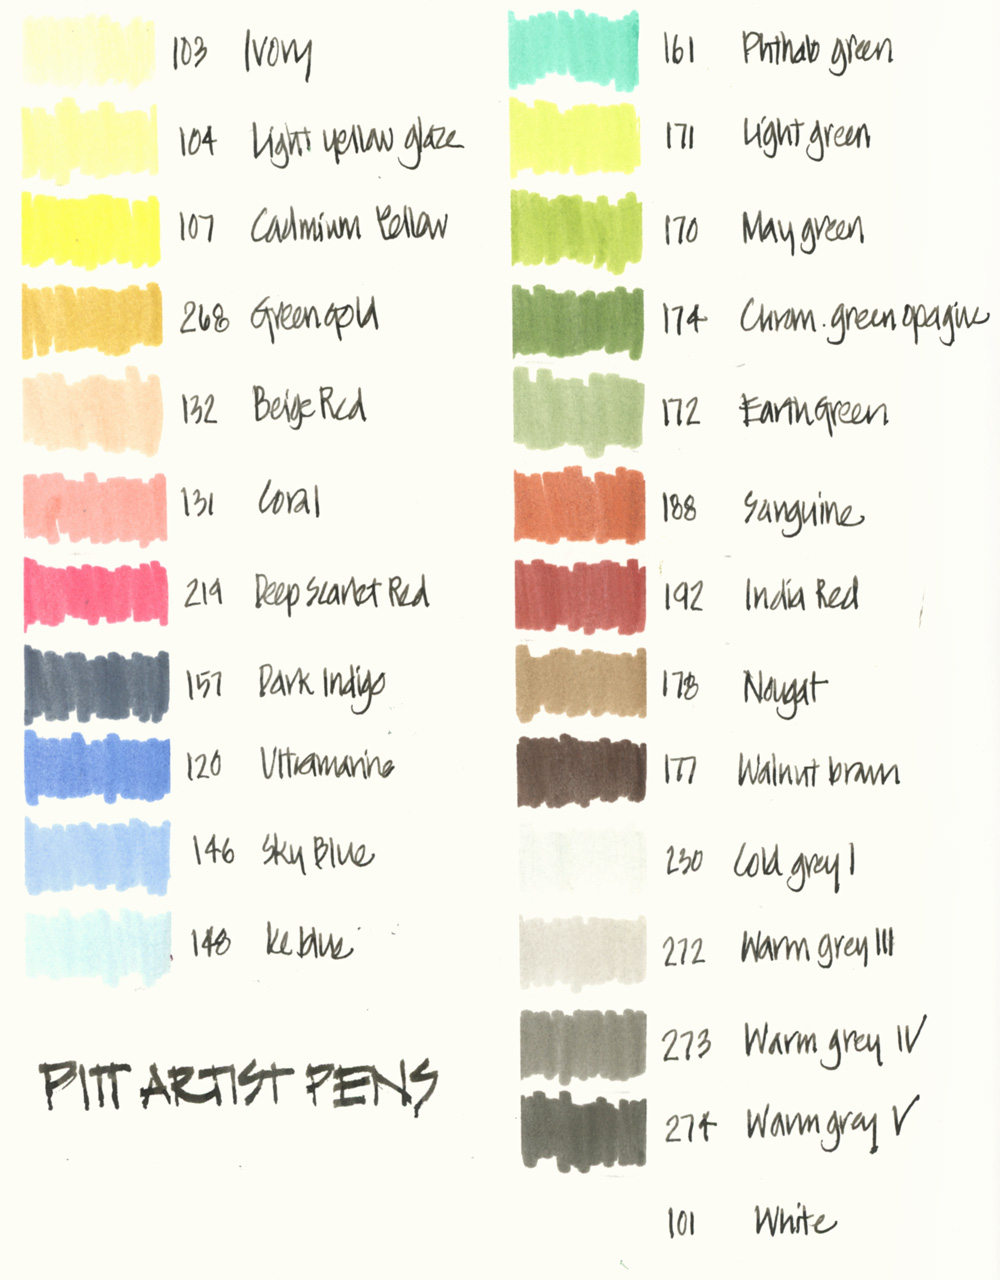 103 Ivory
104 Light yellow glaze
107 Cadmium Yellow
268 Green gold
132 Beige Red
131 Coral
219 Deep Scarlet Red
157 Dark Indigo
120 Ultramarine
146 Sky Blue
148 Ice blue
PITT ARTIST PENS
161 Phthalo green
171 Light green
170 May green
174 Chrom. green opaque
172 Earth Green
188 Sanguine
192 India Red
178 Nougat
177 Walnut brown
230 Cold grey I
272 Warm grey III
273 Warm grey IV
274 Warm grey V
101 White